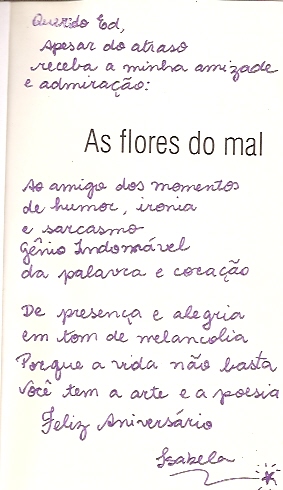 Querido Ed,
Apesar do atraso
receba a minha amizade
e admiração:
As flores do mal
Ao amigo dos momentos
de humor, ironia
e sarcasmo
Gênio Indomável
da palavra e coração
De presença e alegria
em tom de melancolia
Porque a vida não basta
Você tem a arte e a poesia
Feliz Aniversário
Isabela